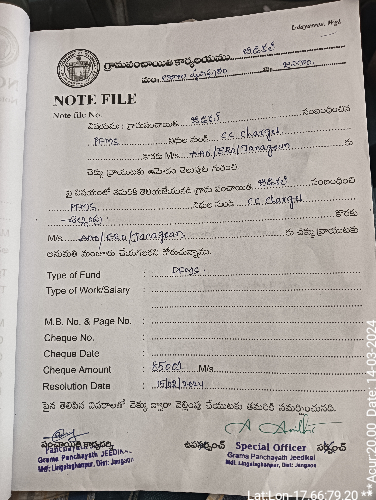 గ్రామపంచాయితి కార్యాలయము జీడికల్
మం॥ జిల్లా జనగాం
NOTE FILE
Note file No.
విషయము : గ్రామపంచాయితి జీడికల్ సంబంధించిన
PFMS నిధుల నుండి C.C. Charges
కొరకు M/s. /Janagaon కు
చెక్కు వ్రాయుటకు ఆమోదం తెలుపుట గురించి
పై విషయంలో తమరికి తెలియజేయునది గ్రామ పంచాయితి జీడికల్ సంబంధించి
PFMS నిధుల నుండి C.C. Charges
కొరకు
M/s. /Janagaon కు చెక్కు వ్రాయుటకు
అనుమతి మంజూరు చేయగలరని కోరుచున్నాను.
Type of Fund : PFMS
Type of Work/Salary :
M.B. No. & Page No. :
Cheque No. :
Cheque Date :
Cheque Amount : M/s.
Resolution Date : 15/02/2024
పైన తెలిపిన వివరాలతో చెక్కు ద్వారా చెల్లింపు చేయుటకు తమరికి సమర్పించనైనది.
పంచాయితీ కార్యదర్శి ఉపసర్పంచ్ Special Officer సర్పంచ్
Panchayat
Grama Panchayath JEEDIKAL Grama Panchayath Jeedikal
Mdl: Lingalaghanpur, Dist: Jangaon Mdl. Lingalaghanpur, Dist: Jangaon
Lat Lon-17.66,79.20 **Acur:20.00 Date, 14-03-2024